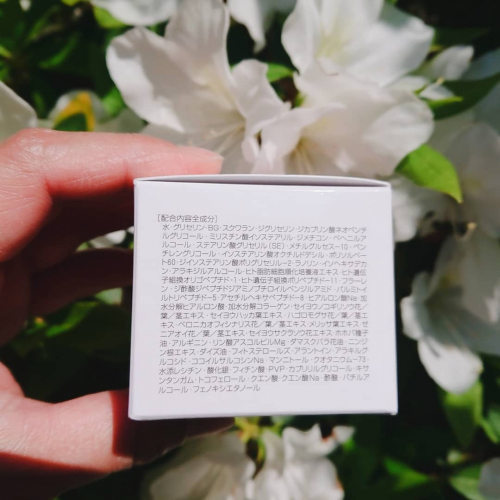 [配合内容全成分]
水・グリセリン・BG・スクワラン・ジグリセリン・ジカプリン酸ネオペンチ
ルグリコール・ミリスチン酸イソステアリル・ジメチコン・ベヘニルア
ルコール・ステアリン酸グリセリル(SE)・メチルグルセス-10・ペン
チレングリコール・イソステアリン酸オクチルドデシル・ポリソルベー
ト60・ジイソステアリン酸ポリグリセリル-2・ラノリン・イソヘキサデカ
ン・アラキジルアルコール・ヒト脂肪細胞順化培養液エキス・ヒト遺伝
子組換オリゴペプチド-1・ヒト遺伝子組換ポリペプチド-11・フラーレ
ン・ジ酢酸ジペプチドジアミノブチロイルベンジルアミド・パルミトイ
ルトリペプチド-5・アセチルヘキサペプチド-8・ヒアルロン酸Na・加
水分解ヒアルロン酸・加水分解コラーゲン・セイヨウノコギリソウ花/
葉/茎エキス・セイヨウハッカ葉エキス・ハゴロモグサ花/葉/茎エ
キス・ベロニカオフィシナリス花/葉/茎エキス・メリッサ葉エキス・ゼ
ニアオイ花/葉/茎エキス・セイヨウサクラソウ花エキス・ホホバ種子
油・アルギニン・リン酸アスコルビルMg・ダマスクバラ花油・ニンジ
ン根エキス・ダイズ油・フィトステロールズ・アラントイン・アラキルグ
ルコシド・ココイルサルコシンNa・マンニトール・クオタニウム-73・
水添レシチン・酸化銀・フィチン酸・PVP・カプリリルグリコール・キサ
ンタンガム・トコフェロール・クエン酸・クエン酸Na・酢酸・バチルア
ルコール・フェノキシエタノール